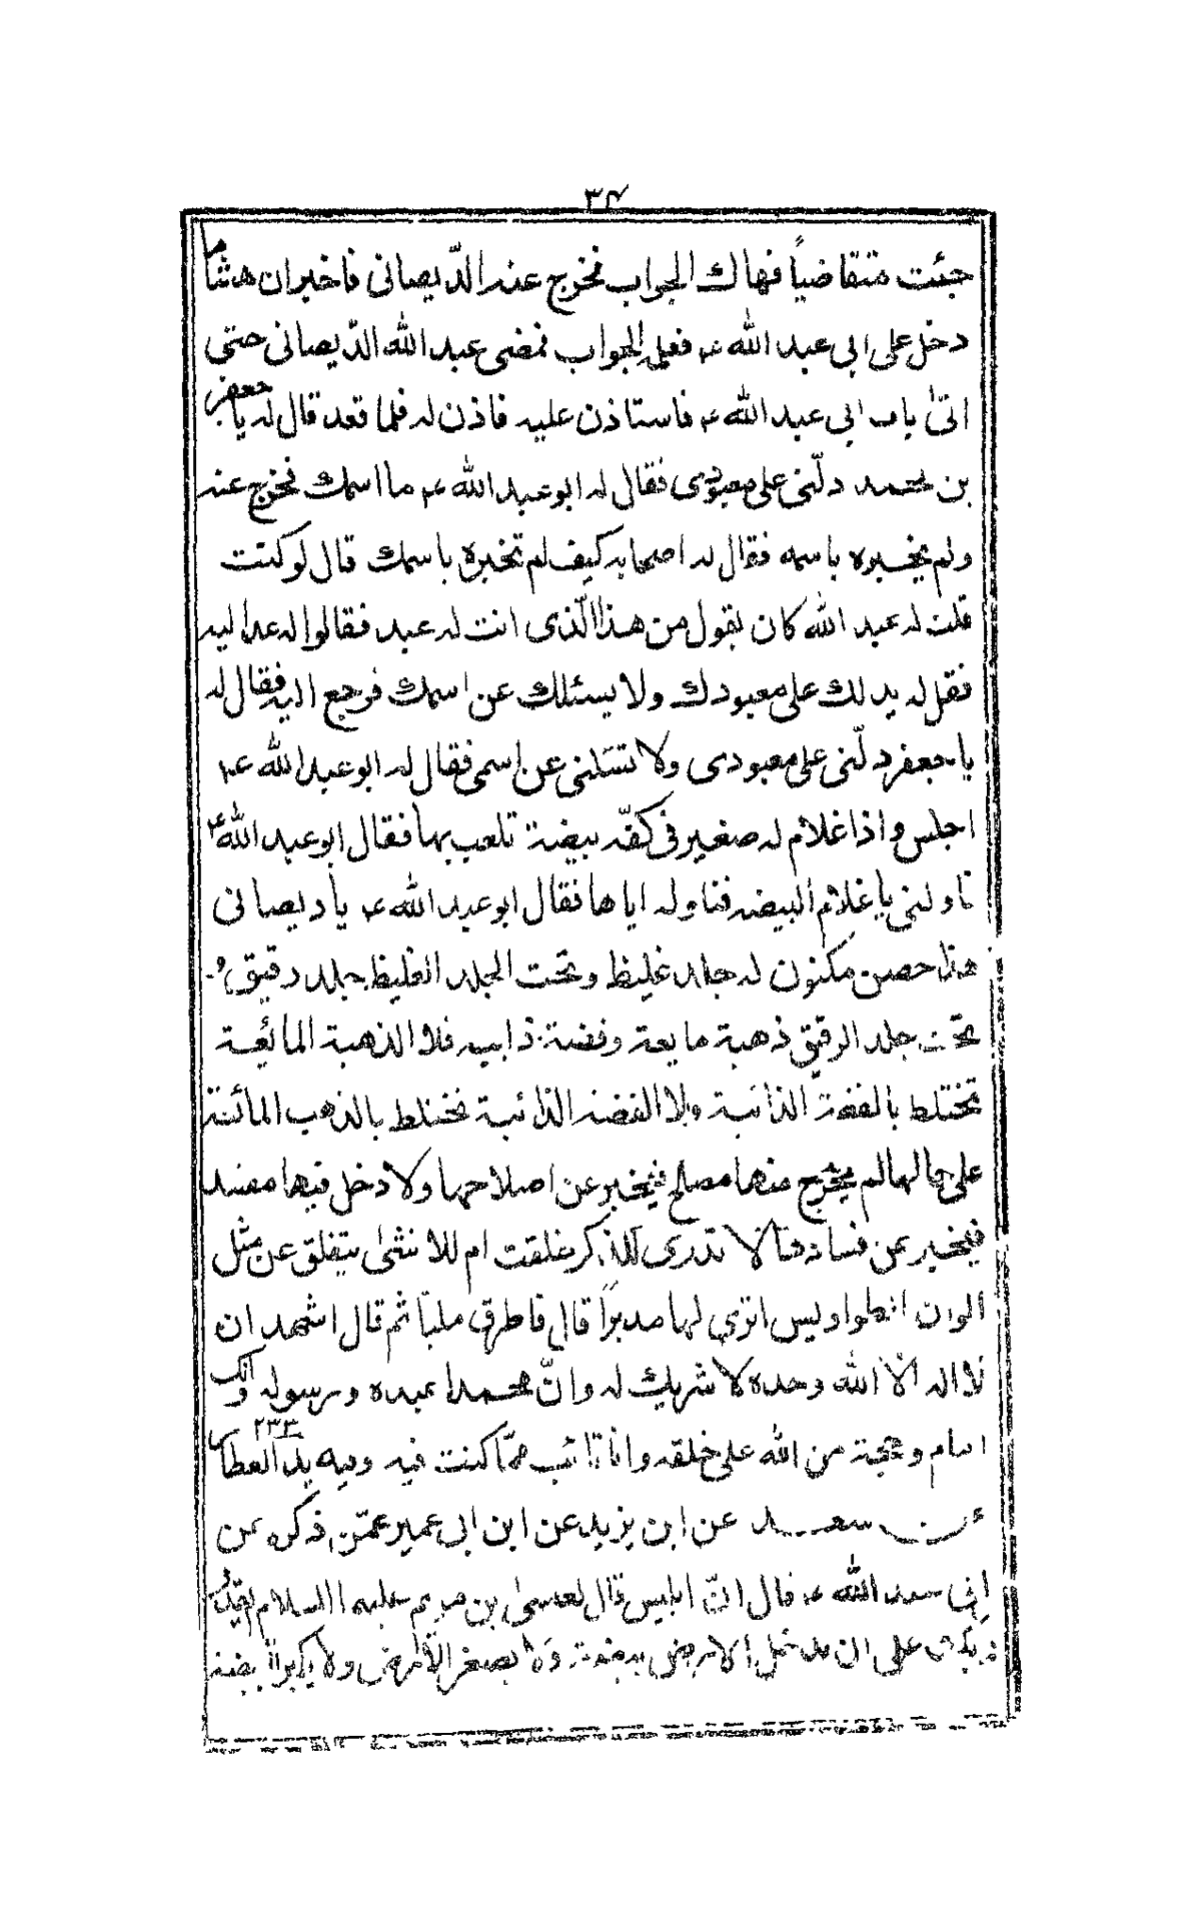 ٣٤
جئت متقاضياً فهاك الجواب فخرج عنه الدّيصانى فاخبر ان هشام
دخل على ابى عبد الله ع فعلمه الجواب فمضى عبد الله الدّيصانى حتى
اتىٰ باب ابى عبد الله ع فاستاذن عليه فاذن له فلما قعد قال له يا جعفر
بن محمد دلّنى على معبودى فقال له ابو عبد الله ع ما اسمك فخرج عنه
ولم يخبره باسمه فقال له اصحابه كيف لم تخبره باسمك قال لو كنت
قلت له عبد الله كان يقول من هذا الّذى انت له عبد فقالوا له عد اليه
فقل له يدلك على معبودك ولا يسئلك عن اسمك فرجع اليه فقال له
يا جعفر دلّنى على معبودى ولا تسئلنى عن اسمى فقال له ابو عبد الله ع
اجلس واذا غلام له صغير فى كفّه بيضة تلعب بها فقال ابو عبد الله ع
ناولنى يا غلام البيضه فناوله اياها فقال ابو عبد الله ع يا ديصانى
هذا حصن مكنون له جلد غليظ وتحت الجلد الغليظ جلد دقيق و
تحت جلد الرقيق ذهبة مايعة وفضة ذابيه فلا الذهبة المائعة
تختلط بالفضة الذائبة ولا الفضه الذائبة تختلط بالذهب المائنة
على حالها لم يخرج منها مصلح فيخبر عن اصلاحها ولا دخل فيها مفسد
فيخبر عن فسادها لا تدرى للذكر خلقت ام للانثىٰ يتفلق عن مثل
الوان الطواويس اترى لها مدبراً قال فاطرق ملياً ثم قال اشهد ان
لا اله الا الله وحده لا شريك له وانّ محمدا عبده ورسوله وانك
امام وحجة من الله على خلقه وانا تائب ممّا كنت فيه وفيه يد العطا
٢٣٣
عن سعد عن ابن يزيد عن ابن ابى عمير عمّن ذكره عن
ابى عبد الله ع قال انّ ابليس قال لعيسىٰ بن مريم عليه السلام ايقدر
ربك على ان يدخل الارض بيضة لا يصغر الارض ولا يكبر البيضة